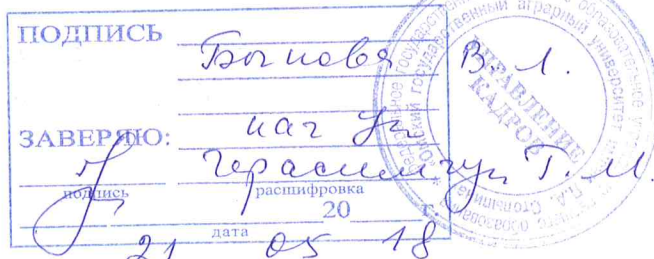 ПОДПИСЬ
Быкова В. Л.
ЗАВЕРЯЮ: нач УК
Герасимчук Г. М.
подпись расшифровка
20 г.
дата
21 05 18
УПРАВЛЕНИЕ
КАДРОВ
государственный аграрный университет
П.А. Столыпина